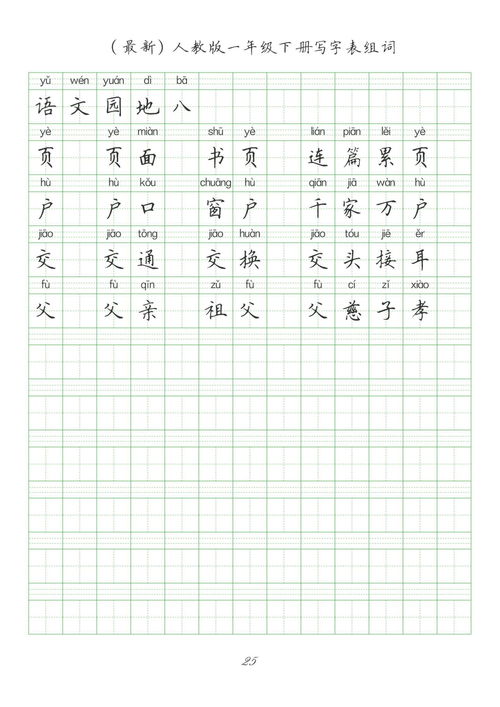 （最新）人教版一年级下册写字表组词
yǔ wén yuán dì bā
语 文 园 地 八
yè yè miàn shū yè lián piān lěi yè
页 页 面 书 页 连 篇 累 页
hù hù kǒu chuāng hù qiān jiā wàn hù
户 户 口 窗 户 千 家 万 户
jiāo jiāo tōng jiāo huàn jiāo tóu jiē ěr
交 交 通 交 换 交 头 接 耳
fù fù qīn zǔ fù fù cí zǐ xiào
父 父 亲 祖 父 父 慈 子 孝
25